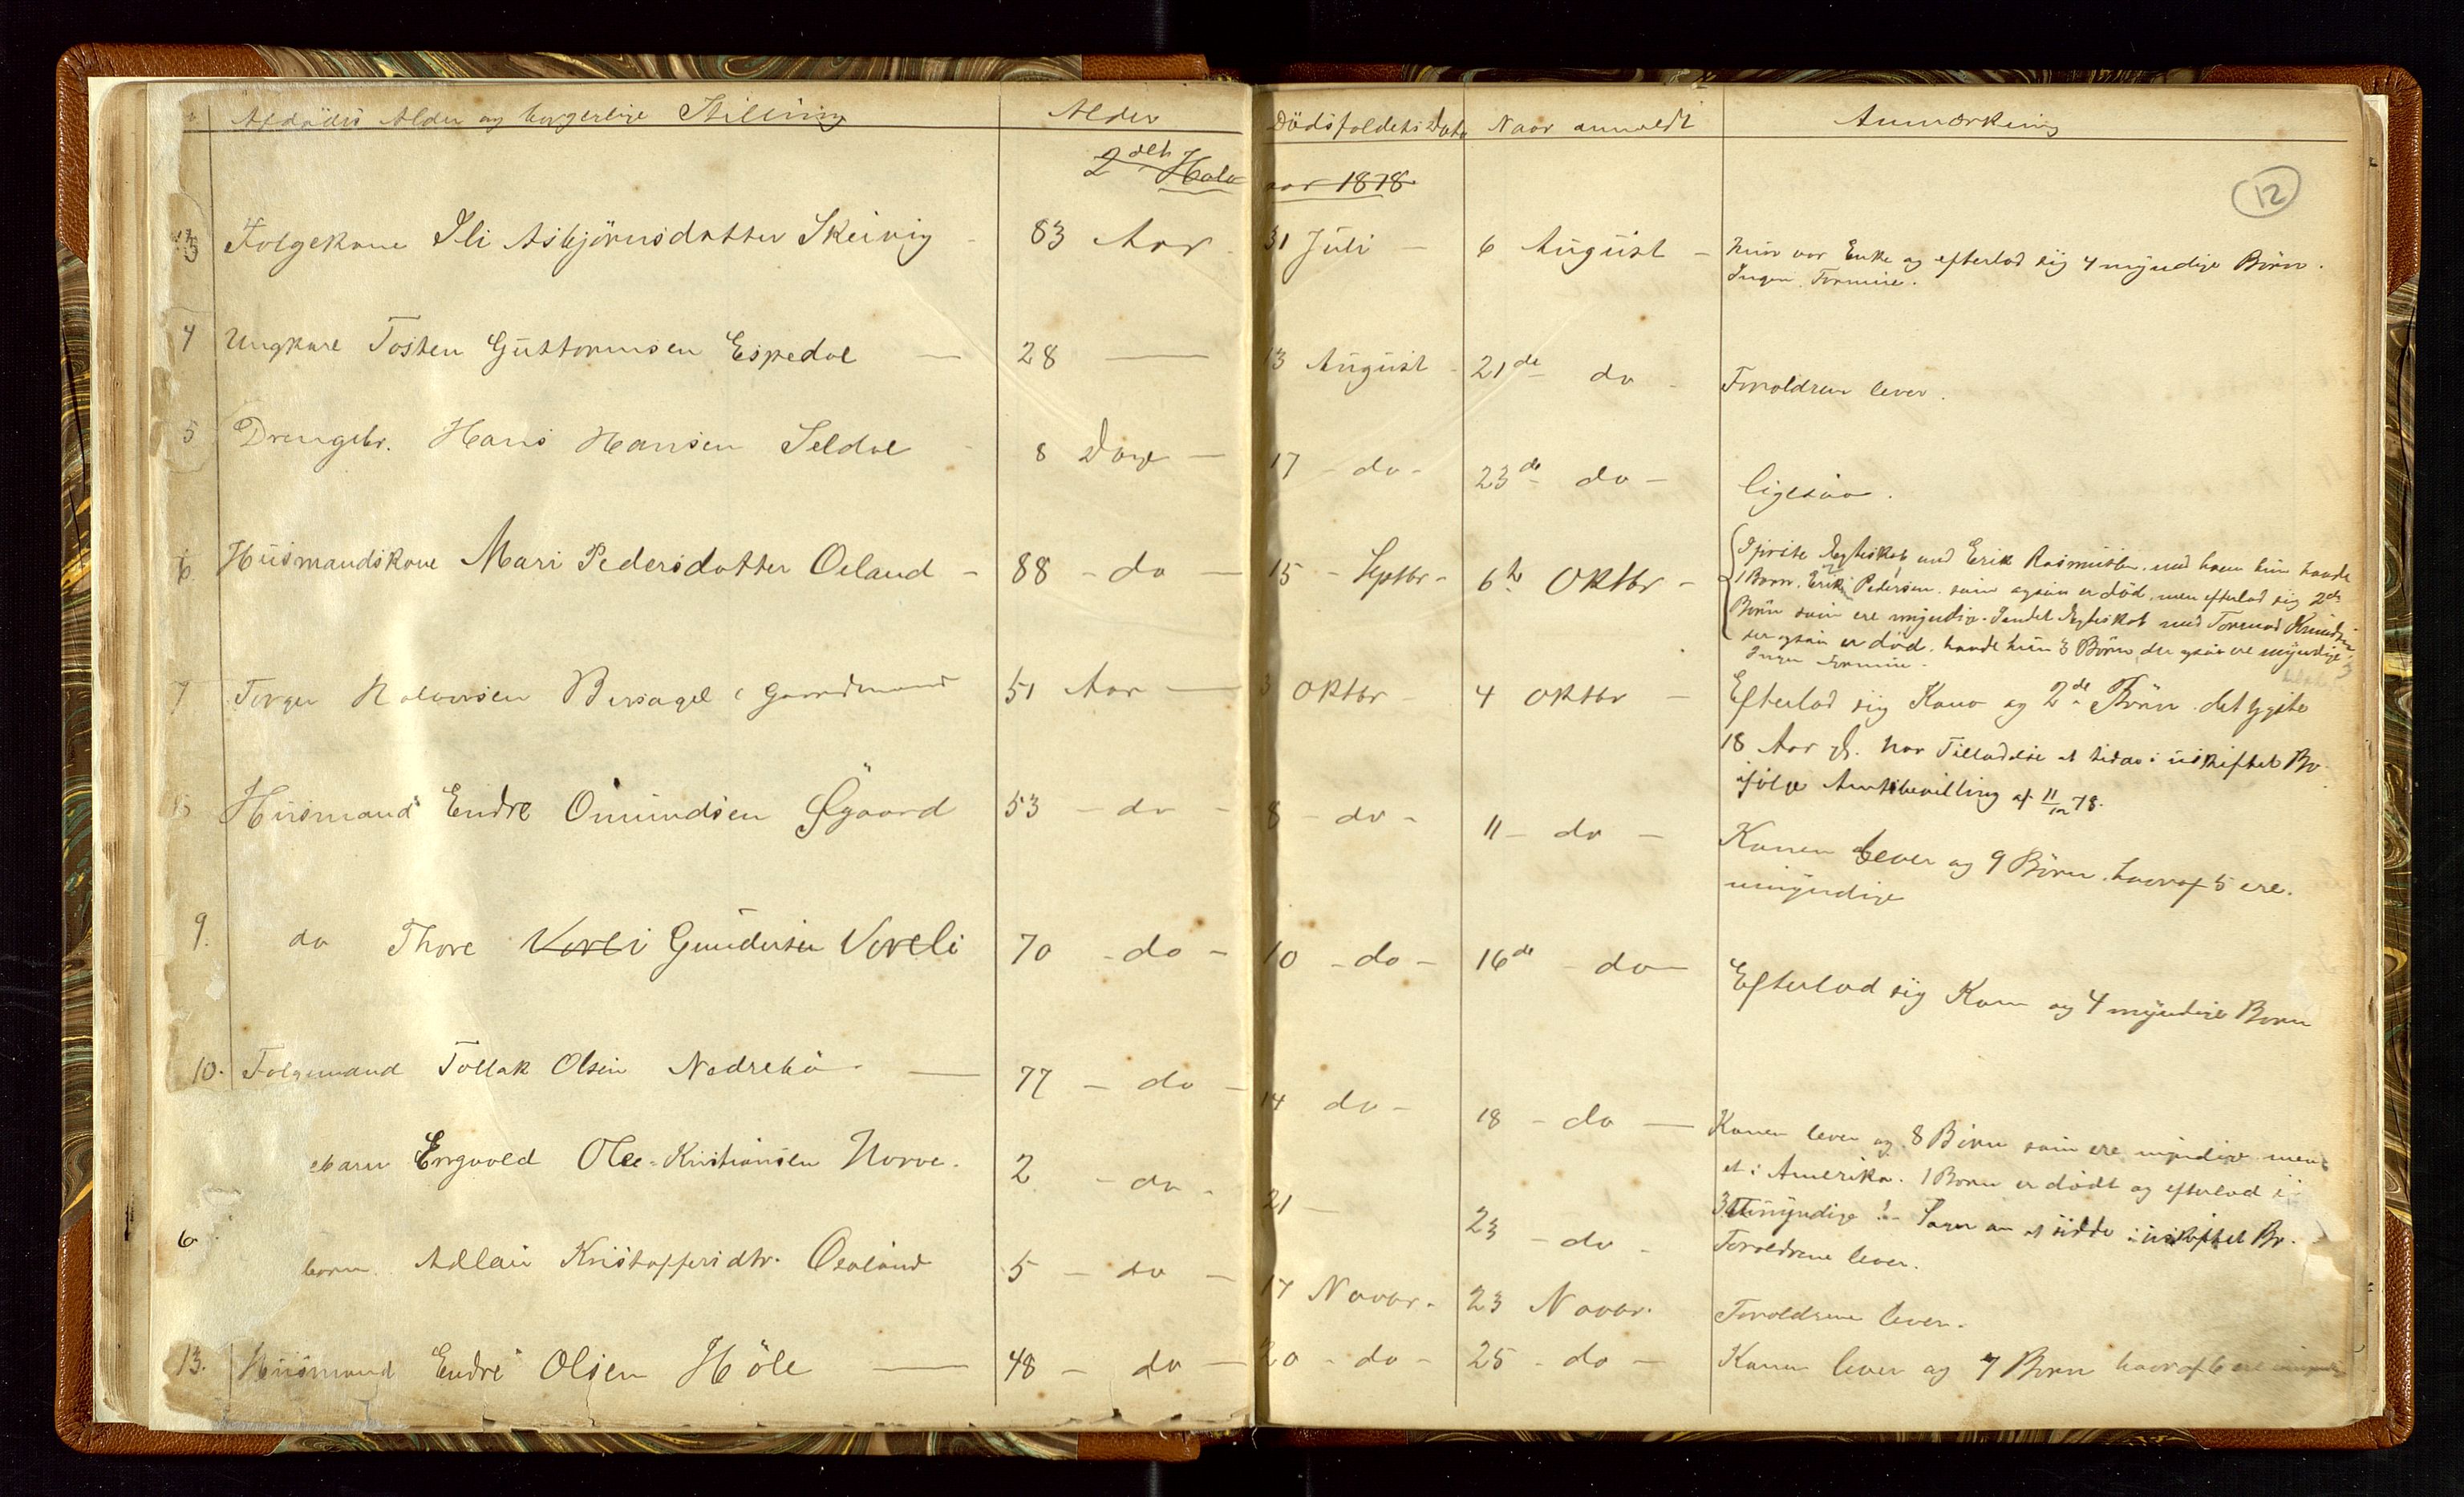 Afdødes Alder og borgerlige Stilling Alder Dödsfaldets Dato Naar anmeldt Anmærkning
2den Halvaar 1878.
12
3 Folgekone Ili Asbjörnsdatter Skeivig - 83 Aar 31 Juli - 6 August - Hun var Enke og efterlod sig 4 myndige Börn.
Ingen Formue.
4 Ungkarl Tosten Guttormsen Espedal - 28 - 13 August - 21de do - Forældrene lever.
5 Drengebr. Hans Hansen Seldal - 8 Dage - 17 - do - 23de do - ligesaa.
6. Husmandskone Mari Pedersdatter Oeland - 88 - do - 15 - Septbr - 6te Oktbr -
I første Ægteskab med Erik Rasmussen, med ham hun havde
1 Barn. Erik Pedersen. som ogsaa er död, men efterlod sig 2de
Börn som ere myndige. I andet Ægteskab med Tormod Knudsen,
der ogsaa er död, havde hun 3 Börn, der ogsaa ere myndige
Ingen Formue.
7 Torger Halvorsen Bersagel (Gaardmand 51 Aar - 3 Oktbr - 4 Oktbr - Efterlod sig Kone og 2de Börn. det ygste
18 Aar gl. har Tilladelse at sidde i uskiftet Bo
ifölge Amtsbevilling af 11/10 78.
Husmand Endre Omundsen Øgaard 53 - do - 8 - do - 11 - do - Konen lever og 9 Börn. hvoraf 5 ere.
umyndige
9. do Thore Vorli Gundersen Voreli 70 - do - 10 - do - 16de - do - Efterlod sig Kone og 4 myndige Börn
10. Folgemand Tollak Olsen Nedrebö. - 77 - do - 14 do - 18 - do - Konen lever og 8 Börn som ere myndige men
et i Amerika. 1 Barn er dödt og efterlod
3 Umyndige ! - Søger om at sidde i uskiftet Bo.
Barn Engvald Ole - Kristiansen Norve. 2 - do - 21 - 23 - do - Forældrene lever.
6
barn. Adlau Kristoffersdtr. Oealand 5 - do - 17 Novbr. 23 Novbr. Forældrene lever.
13. Husmand Endre Olsen Höle - 48 - do - 20 - do - 25 - do - Konen lever og 7 Börn hvoraf 6 ere